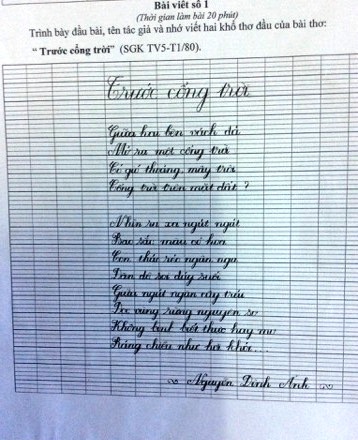 Bài viết số 1
(Thời gian làm bài 20 phút)
Trình bày đầu bài, tên tác giả và nhớ viết hai khổ thơ đầu của bài thơ:
“ Trước cổng trời” (SGK TV5-T1/80).
Trước cổng trời
Giữa hai bên vách đá
Mở ra một cổng trời
Có gió thoảng, mây trôi
Cổng trời trên mặt đất ?
Nhìn ra xa ngút ngát
Bao sắc màu cỏ hoa
Con thác réo ngân nga
Đàn dê soi đáy suối
Giữa ngút ngàn cây trái
Dọc vùng rừng nguyên sơ
Không biết thực hay mơ
Ráng chiều như hơi khói...
Nguyễn Đình Ảnh